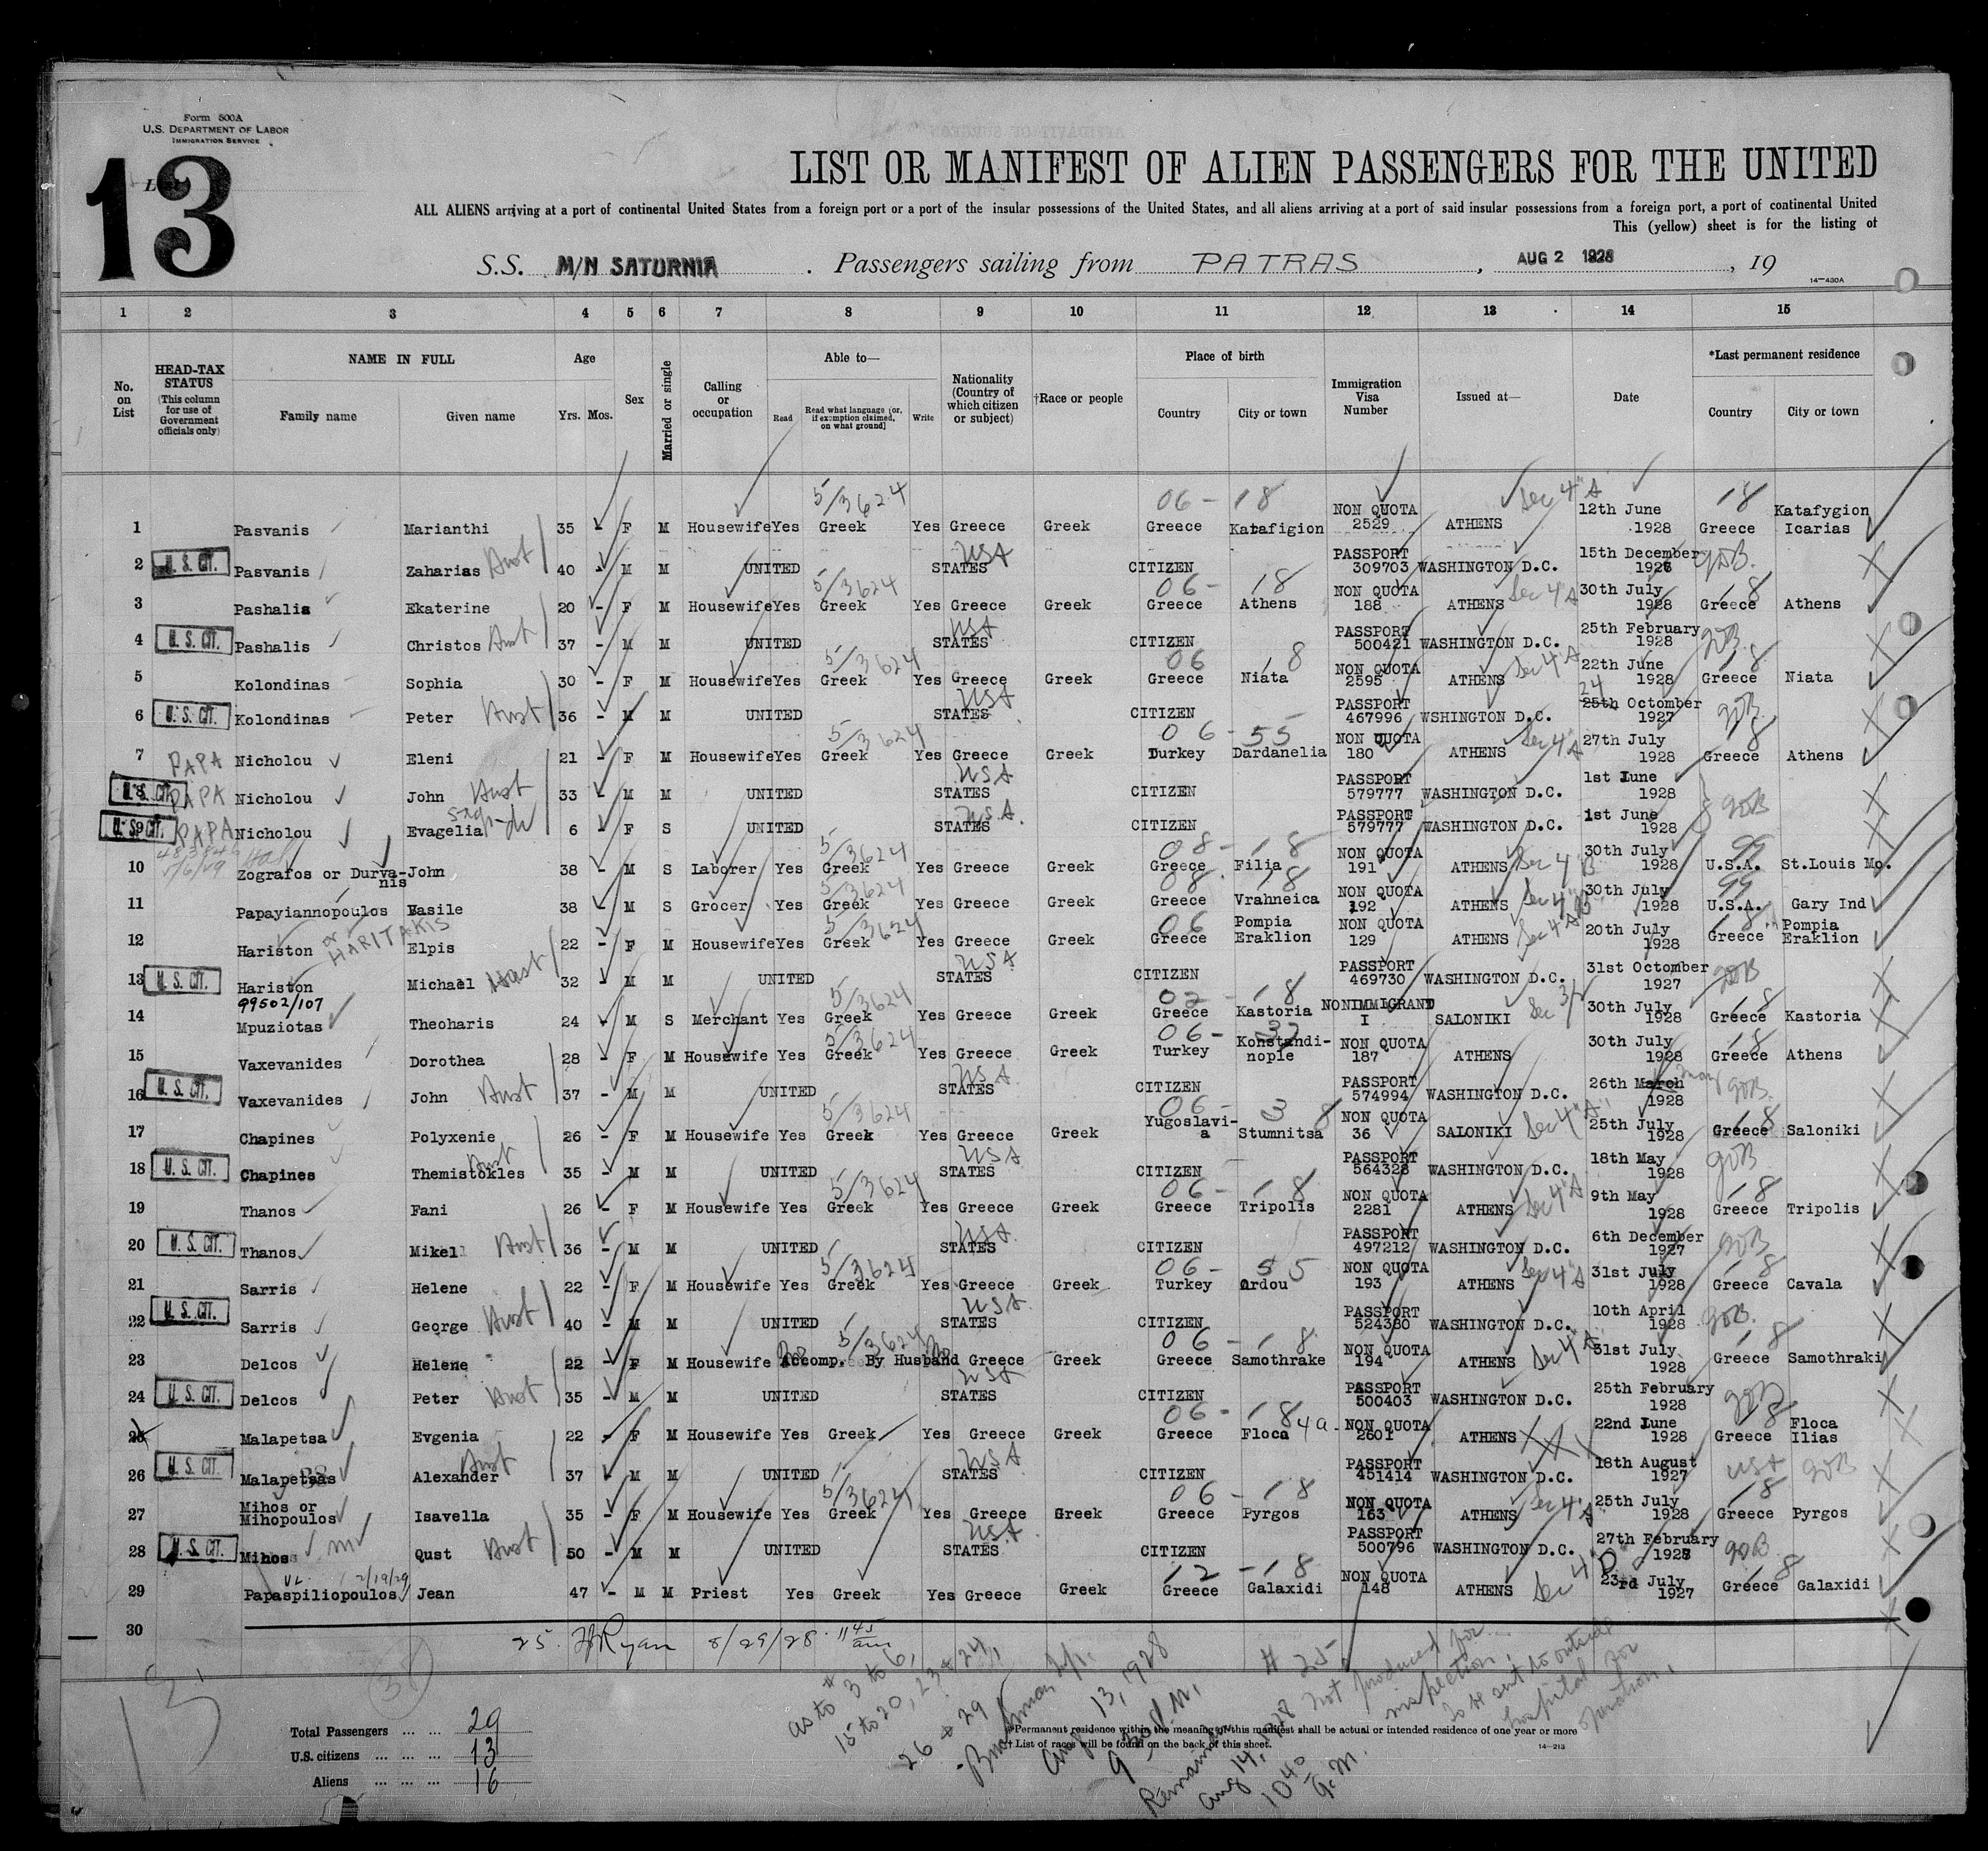 Form 500A
U.S. DEPARTMENT OF LABOR
IMMIGRATION SERVICE
13
LIST OR MANIFEST OF ALIEN PASSENGERS FOR THE UNITED
ALL ALIENS arriving at a port of continental United States from a foreign port or a port of the insular possessions of the United States, and all aliens arriving at a port of said insular possessions from a foreign port, a port of continental United
This (yellow) sheet is for the listing of
S.S. M/N SATURNIA. Passengers sailing from PATRAS, AUG 2 1928, 19
14-430A
1 2 3 4 5 6 7 8 9 10 11 12 13 14 15
No. on List
HEAD-TAX STATUS (This column for use of Government officials only)
NAME IN FULL
Family name Given name
Age
Yrs. Mos.
Sex
Married or single
Calling or occupation
Able to—
Read Read what language [or, if exemption claimed, on what ground] Write
Nationality (Country of which citizen or subject)
†Race or people
Place of birth
Country City or town
Immigration Visa Number
Issued at—
Date
*Last permanent residence
Country City or town
5/3624 06 - 18 Sec 4"A 18
1 Pasvanis Marianthi 35 F M Housewife Yes Greek Yes Greece Greek Greece Katafigion NON QUOTA 2529 ATHENS 12th June 1928 Greece Katafygion Icarias
2 U. S. CIT. Pasvanis Zaharias 40 - M M UNITED STATES USA CITIZEN PASSPORT 309703 WASHINGTON D.C. 15th December 1926
5/3624 06 - 18 Sec 4"A 18
3 Pashalis Ekaterine 20 - F M Housewife Yes Greek Yes Greece Greek Greece Athens NON QUOTA 188 ATHENS 30th July 1928 Greece Athens
4 U. S. CIT. Pashalis Christos 37 - M M UNITED STATES USA CITIZEN PASSPORT 500421 WASHINGTON D.C. 25th February 1928
5/3624 06 18 Sec 4"A 18
5 Kolondinas Sophia 30 - F M Housewife Yes Greek Yes Greece Greek Greece Niata NON QUOTA 2595 ATHENS 22th June 1928 Greece Niata
6 U. S. CIT. Kolondinas Peter 36 - M M UNITED STATES USA CITIZEN PASSPORT 467996 WSHINGTON D.C. 24 25th Octomber 1927
5/3624 06 - 55 Sec 4"A 18
7 PAPA Nicholou Eleni 21 - F M Housewife Yes Greek Yes Greece Greek Turkey Dardanelia NON QUOTA 180 ATHENS 27th July 1928 Greece Athens
8 U. S. CIT. PAPA Nicholou John 33 - M M UNITED STATES USA CITIZEN PASSPORT 579777 WASHINGTON D.C. 1st Iune 1928
9 U. S. CIT. PAPA Nicholou Evagelia 6 - F S UNITED STATES U.S.A. CITIZEN PASSPORT 579777 WASHINGTON D.C. 1st June 1928
5/3624 08 - 18 Sec 4"B 99
10 Zografos or Durva-nis John 38 - M S Laborer Yes Greek Yes Greece Greek Greece Filia NON QUOTA 191 ATHENS 30th July 1928 U.S.A. St.Louis Mo.
5/3624 08 18 Sec 4"B 99
11 Papayiannopoulos Vasile 38 - M S Grocer Yes Greek Yes Greece Greek Greece Vrahneica NON QUOTA 192 ATHENS 30th July 1928 U.S.A. Gary Ind
5/3624 06 Sec 4"A 18
12 Hariston or HARITAKIS Elpis 22 - F M Housewife Yes Greek Yes Greece Greek Greece Pompia Eraklion NON QUOTA 129 ATHENS 20th July 1928 Greece Pompia Eraklion
13 U. S. CIT. Hariston Michael 32 - M M UNITED STATES USA CITIZEN PASSPORT 469730 WASHINGTON D.C. 31st Octomber 1927
99502/107 5/3624 02 - 18 18
14 Mpuziotas Theoharis 24 - M S Merchant Yes Greek Yes Greece Greek Greece Kastoria NONIMMIGRAND I SALONIKI 30th July 1928 Greece Kastoria
5/3624 06 - 32 18
15 Vaxevanides Dorothea 28 - F M Housewife Yes Greek Yes Greece Greek Turkey Konstandi-nople NON QUOTA 187 ATHENS 30th July 1928 Greece Athens
16 U. S. CIT. Vaxevanides John 37 - M M UNITED STATES USA CITIZEN PASSPORT 574994 WASHINGTON D.C. 26th March May 1928
5/3624 06 - 38 Sec 4"A" 18
17 Chapines Polyxenie 26 - F M Housewife Yes Greek Yes Greece Greek Yugoslavi-a Stumnitsa NON QUOTA 36 SALONIKI 25th July 1928 Greece Saloniki
18 U. S. CIT. Chapines Themistokles 35 - M M UNITED STATES USA CITIZEN PASSPORT 564328 WASHINGTON D.C. 18th May 1928
5/3624 06 - 18 Sec 4"A 18
19 Thanos Fani 26 - F M Housewife Yes Greek Yes Greece Greek Greece Tripolis NON QUOTA 2281 ATHENS 9th May 1928 Greece Tripolis
20 U. S. CIT. Thanos Mikel 36 - M M UNITED STATES USA CITIZEN PASSPORT 497212 WASHINGTON D.C. 6th December 1927
5/3624 06 - 55 Sec 4"A 18
21 Sarris Helene 22 - F M Housewife Yes Greek Yes Greece Greek Turkey Ordou NON QUOTA 193 ATHENS 31st July 1928 Greece Cavala
22 U. S. CIT. Sarris George 40 - M M UNITED STATES USA CITIZEN PASSPORT 524380 WASHINGTON D.C. 10th April 1928
5/3624 06 - 18 Sec 4"A" 18
23 Delcos Helene 22 - F M Housewife Accomp. By Husband Greece Greek Greece Samothrake NON QUOTA 194 ATHENS 31st July 1928 Greece Samothraki
24 U. S. CIT. Delcos Peter 35 - M M UNITED STATES USA CITIZEN PASSPORT 500403 WASHINGTON D.C. 25th February 1928
06 - 18 4a 18
25 Malapetsa Evgenia 22 - F M Housewife Yes Greek Yes Greece Greek Greece Floca NON QUOTA 2601 ATHENS 22nd Iune 1928 Greece Floca Ilias
26 U. S. CIT. Malapetsas Alexander 37 - M M UNITED STATES USA CITIZEN PASSPORT 451414 WASHINGTON D.C. 18th August 1927 USA
5/3624 06 - 18 Sec 4"A 18
27 Mihos or Mihopoulos Isavella 35 - F M Housewife Yes Greek Yes Greece Greek Greece Pyrgos NON QUOTA 163 ATHENS 25th July 1928 Greece Pyrgos
28 U. S. CIT. Mihos Qust 50 - M M UNITED STATES USA CITIZEN PASSPORT 500796 WASHINGTON D.C. 27th February 1928
2/19/29 12 - 18 Sec 4"D" 18
29 Papaspiliopoulos Jean 47 - M M Priest Yes Greek Yes Greece Greek Greece Galaxidi NON QUOTA 148 ATHENS 23rd July 1927 Greece Galaxidi
30
25. Ryan 8/29/28. 11 45 am
as to # 3 to 6,
15 to 20, 23 & 24,
26 & 29
Aug 13, 1928
9 30 P.M.
Remainder
Aug 14, 1928
10 40 A.M.
# 25 Not produced for inspection,
To be sent to outside
hospital for
operation.
Total Passengers ... ... 29
U.S. citizens ... ... ... 13
Aliens ... ... ... 16
*Permanent residence within the meaning of this manifest shall be actual or intended residence of one year or more
† List of races will be found on the back of this sheet.
14-213